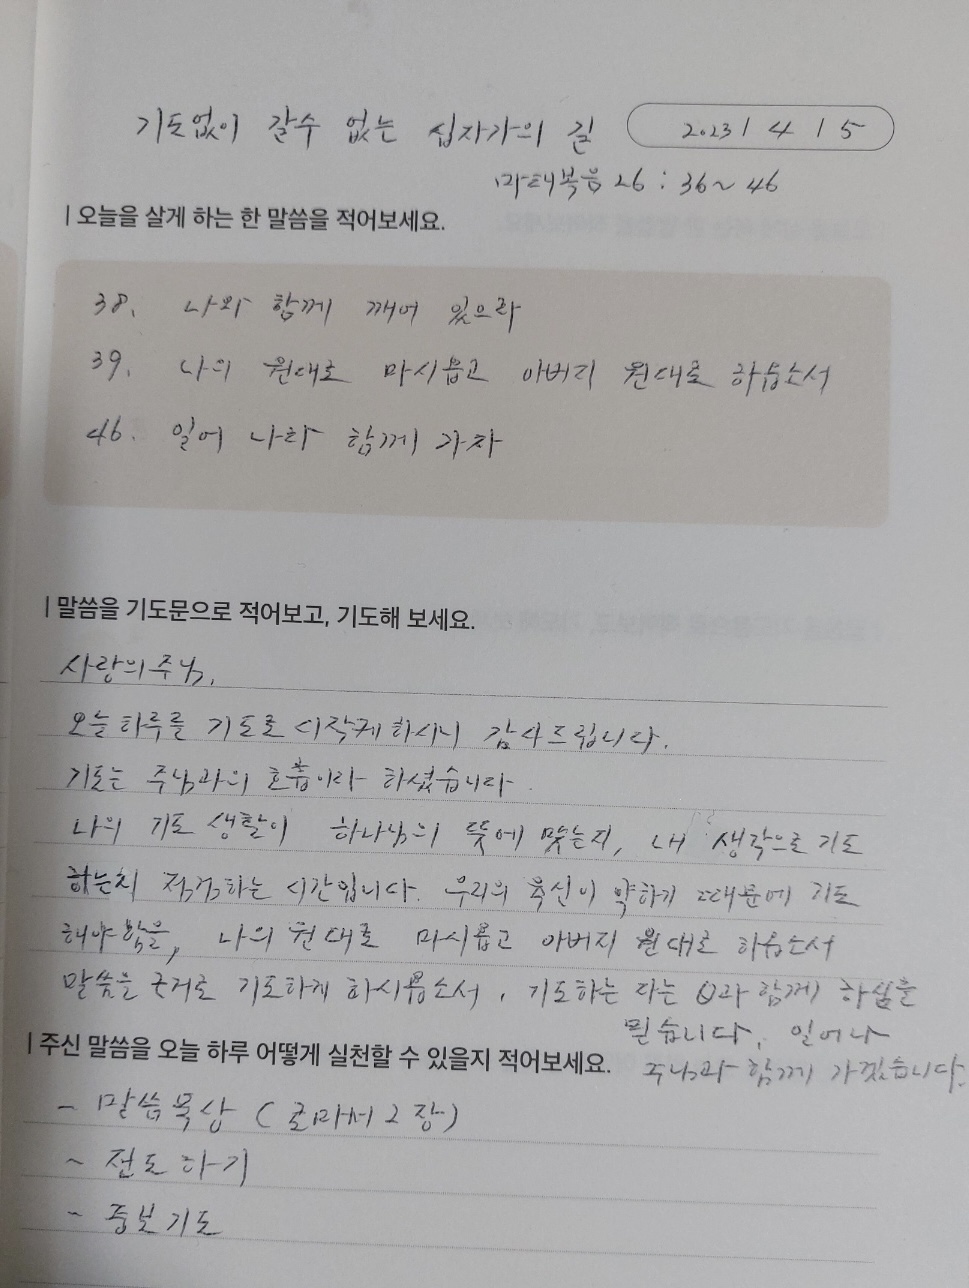 기도없이 갈수 없는 십자가의 길
2023 / 4 / 5
마태복음 26 : 36~46
| 오늘을 살게 하는 한 말씀을 적어보세요.
38. 나와 함께 깨어 있으라
39. 나의 원대로 마시옵고 아버지 원대로 하옵소서
46. 일어 나라 함께 가자
| 말씀을 기도문으로 적어보고, 기도해 보세요.
사랑의 주님,
오늘 하루를 기도로 시작케 하시니 감사드립니다.
기도는 주님과의 호흡이라 하셨습니다.
나의 기도 생활이 하나님의 뜻에 맞는지, 내 생각으로 기도
하는지 점검하는 시간입니다. 우리의 육신이 약하기 때문에 기도
해야 함을, 나의 원대로 마시옵고 아버지 원대로 하옵소서
말씀을 근거로 기도하게 하시옵소서. 기도하는 함께 하심을
믿습니다. 일어나
| 주신 말씀을 오늘 하루 어떻게 실천할 수 있을지 적어보세요.
주님과 함께 가겠습니다.
- 말씀묵상 (로마서 2장)
~ 전도하기
~ 중보기도